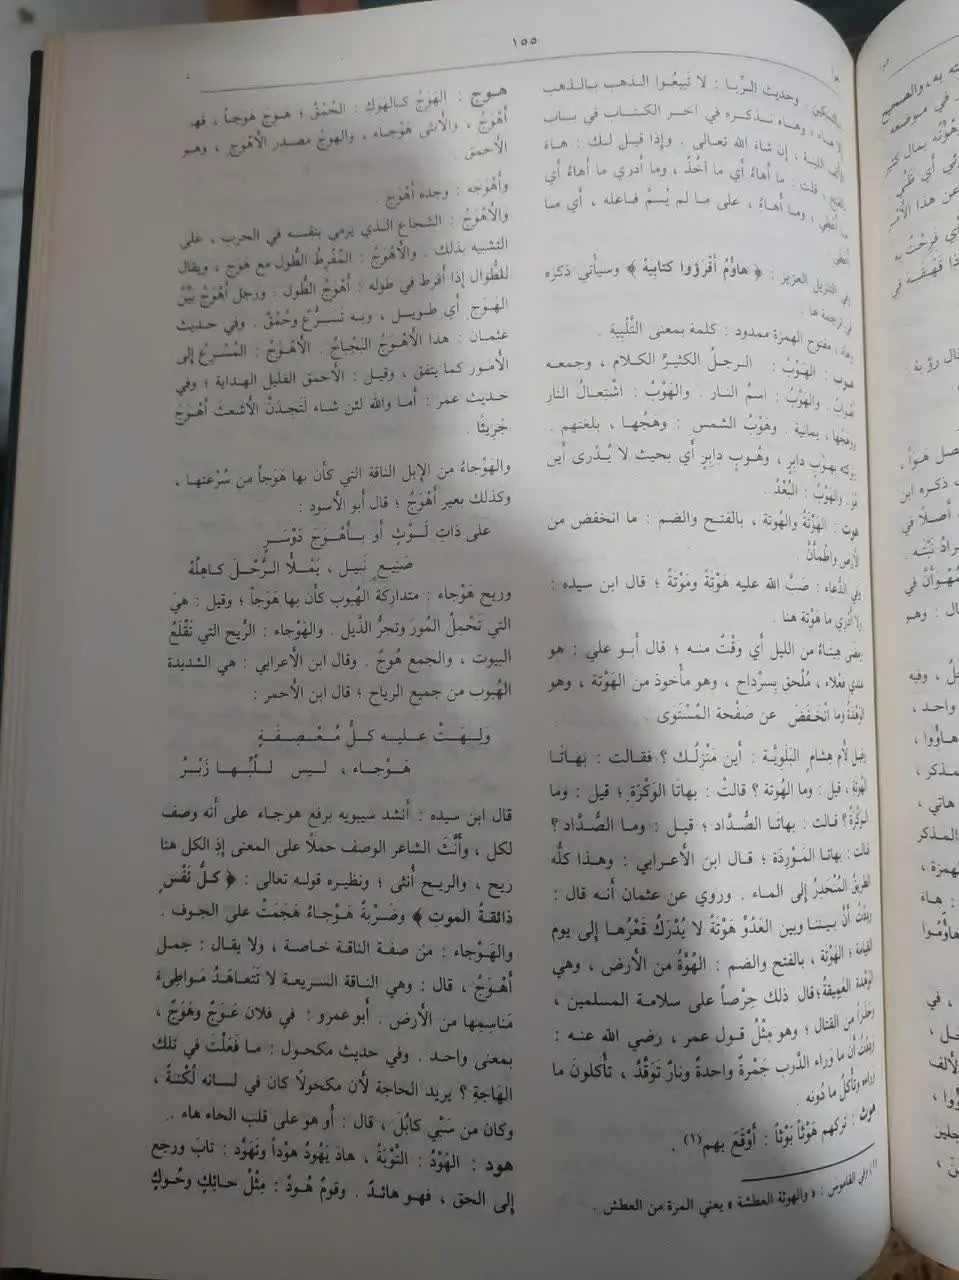 ١٥٥
بالتسكين . وحديث الرِّبا : لا تَبيعُوا الذهب بالذهب
إلا هاء وهاء نذكره في آخر الكتاب في باب
الألف اللينة ، إن شاء الله تعالى . وإذا قيل لك : هاءَ
بالفتح ، قلت : ما أَهاءُ أَي ما آخُذُ ، وما أدري ما أَهاءُ أَي
ما أُعْطِي ، وما أُهاءُ ، على ما لم يُسمَّ فاعله ، أي ما
أُعْطى .
وفي التنزيل العزيز : ﴿ هاؤُمُ أقْرَؤوا كتابِيَهْ ﴾ وسيأتي ذكره
في ترجمة ها .
وهاء ، مفتوح الهمزة ممدود : كلمة بمعنى التَّلْبِية .
هوب : الهَوْبُ : الرجلُ الكثيرُ الكلام ، وجمعه
أَهْوابٌ . والهَوْبُ : اسمُ النار . والهَوْبُ : اشْتِعالُ النار
ووَهَجُها ، يمانية . وهَوْبُ الشمس : وهجُها ، بلغتهم .
وتركته بهَوْبٍ دابِرٍ ، وهُوبٍ دابِرٍ أَي بحيث لا يُدْرى أَين
هُوَ . والهَوْبُ : البُعْدُ .
هوت : الهَوْتَةُ والهُوتة ، بالفتح والضم : ما انخفض من
الأرض واطْمَأَنَّ .
وفي الدُّعاء : صَبَّ الله عليه هَوْتَةً ومَوْتَةً ؛ قال ابن سيده :
ولا أَدْري ما هَوْتة هنا .
ومضى هِيتاءٌ من الليل أَي وَقْتٌ منه ؛ قال أبو علي : هو
عندي فعْلاء ، مُلْحق بِسِرْداح ، وهو مأْخوذ من الهَوْتة ، وهو
الوَهْدةُ وما انْخَفَضَ عن صَفْحة المُسْتَوى .
وقيل لأُم هِشام البَلَوِيَّة : أَين مَنْزِلُك ؟ فقالت : بهاتا
الهُوتَةِ ، قيل : وما الهُوتة ؟ قالتْ : بهاتَا الوَكْرَةِ ؛ قيل : وما
الوَكْرَةُ ؟ قالت : بهاتَا الصُّدَّاد ؛ قيل : وما الصُّدَّاد ؟
قالت : بهاتا المَوْرِدَة ؛ قال ابن الأَعرابي : وهذا كلُّه
الطريقُ المُنْحَدِرُ إلى الماء . وروي عن عثمان أَنه قال :
وَدِدْتُ أَنَّ بيننا وبين العَدُوّ هَوْتَةً لا يُدْرَكُ قَعْرُها إلى يوم
القيامة ؛ الهَوْتَة ، بالفتح والضم : الهُوَّةُ من الأَرض ، وهي
الوَهْدة العَمِيقةُ ؛ قال ذلك حِرْصاً على سلامة المسلمين ،
وحَذَراً من القتال ؛ وهو مِثْلُ قول عمر ، رضي الله عنه :
وَدِدْتُ أن ما وَراء الدَّرب جَمْرةٌ واحدةٌ ونارٌ تَوَقَّدُ ، تأكلونَ ما
وراءه ونأكلُ ما دُونه .
هوث : تركهم هَوْثاً بَوْثاً : أَوْقَعَ بهم(١) .
(١) وفي القاموس : « والهوثة العطشة » يعني المرة من العطش .
هوج : الهَوَجُ كالهَوَكِ : الحُمْقُ ؛ هوِجَ هَوَجاً ، فهو
أَهْوَجُ ، والأُنثى هَوْجاء ، والهوَجُ مصدر الأَهْوَجِ ، وهو
الأحمق .
وأَهْوَجَه : وجده أَهْوَجَ .
والأَهْوَجُ : الشجاع الذي يرمي بنفسه في الحرب ، على
التشبيه بذلك . والأَهْوَجُ : المُفْرِطُ الطُّول مع هَوَجٍ ، ويقال
للطُّوال إذا أفرط في طوله : أَهْوَجُ الطُّول . ورجل أَهْوَجُ بَيِّنُ
الهَوَجِ أَي طويل ، وبه تَسَرُّعٌ وحُمْقٌ . وفي حديث
عثمان : هذا الأَهْوَجُ البَجْباجُ . الأَهْوَجُ : المُتَسَرِّعُ إلى
الأُمور كما يتفق ، وقيل : الأَحمق القليل الهداية ؛ وفي
حديث عمر : أما والله لئن شاء لَتَجِدَنَّ الأشعثَ أَهْوَجَ
جَرِيئًا .
والهَوْجاءُ من الإِبل الناقة التي كأَن بها هَوَجاً من سُرْعتها ،
وكذلك بعير أَهْوَجُ ؛ قال أَبو الأسود :
على ذاتِ لَوْثٍ أو بأَهْوَجَ دَوْسَرٍ
صَنِيعٍ نَبيلٍ ، يَمْلأُ الرَّحْلَ كاهِلُهْ
وريح هَوْجاء : متداركة الهُبوب كأَن بها هَوَجاً ؛ وقيل : هيَ
التي تَحْمِلُ المُورَ وتجرُّ الذَّيل . والهَوْجاء : الرِّيح التي تَقْلَعُ
البيوت ، والجمع هُوجٌ . وقال ابن الأعرابي : هي الشديدة
الهُبوب من جميع الرياح ؛ قال ابن الأحمر :
ولِهَتْ عليه كلُّ مُعْصِفَةٍ
هَوْجاء ، ليس لُلبِّها زَبْرُ
قال ابن سيده : أَنشد سيبويه برفع هوجاء على أنه وصف
لكل ، وأَنَّثَ الشاعر الوصف حملاً على المعنى إذِ الكل هنا
ريح ، والريح أُنثى ؛ ونظيره قوله تعالى : ﴿ كلُّ نَفْسٍ
ذائقةُ الموتِ ﴾ وضَرْبةٌ هَوْجاءُ هَجَمَتْ على الجوف .
والهَوْجاء : من صفة الناقة خاصة ، ولا يقال : جمل
أَهْوَجُ ، قال : وهي الناقة السريعة لا تَتَعاهَدُ مَواطِىءَ
مَناسِمِها من الأَرض . أَبو عمرو : في فلان عَوَجٌ وهَوَجٌ ،
بمعنى واحد . وفي حديث مكحول : ما فَعَلْتَ في تلك
الهَاجَةِ ؟ يريد الحاجة لأن مكحولاً كان في لسانه لُكْنةٌ ،
وكان من سَبْي كابُلَ ، قال : أو هو على قلب الحاء هاء .
هود : الهَوْدُ : التَّوْبَةُ ، هادَ يَهُودُ هوْداً وتَهَوَّد : تابَ ورجع
إلى الحق ، فهو هائدٌ . وقومٌ هُودٌ : مِثْلُ حائِكٍ وحُوكٍ